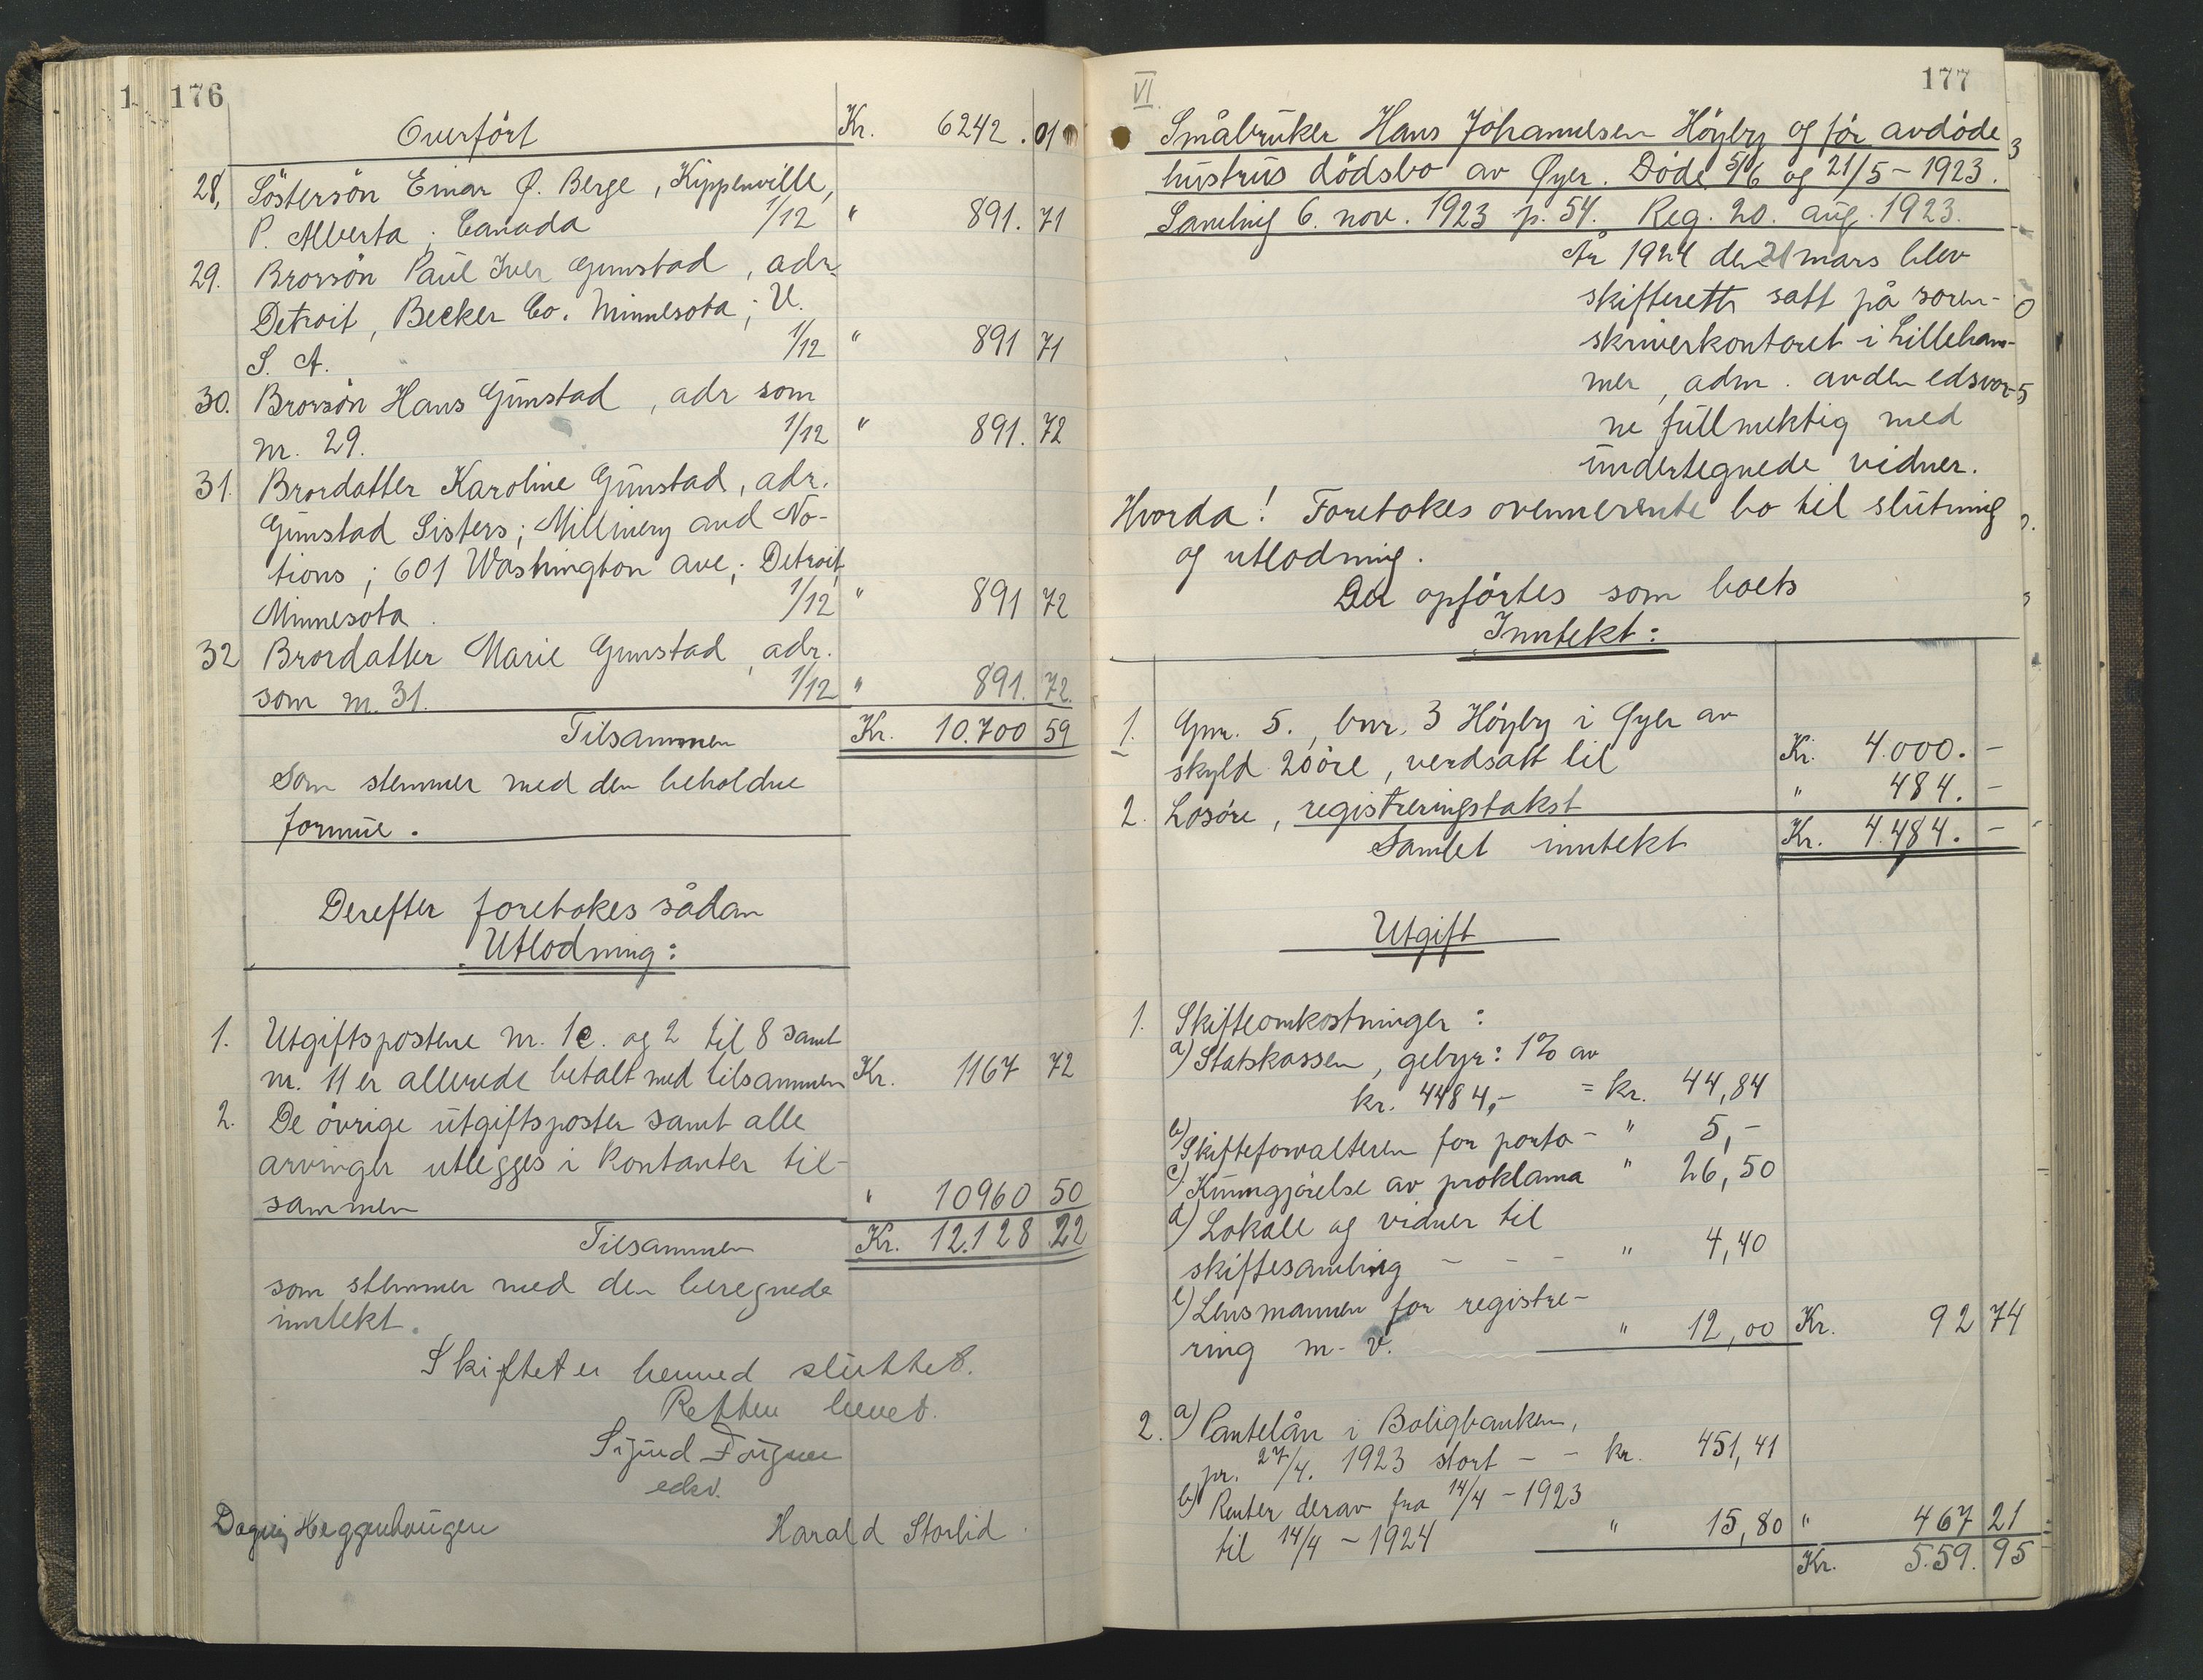 176
Overført Kr. 6242. 01
28. Søstersøn Einar Ø. Berge, Kippenville,
P. Alberta; Canada 1/12 " 891. 71
29. Brorsøn Paul Iver Gunstad, adr.
Detroit, Becker Co. Minnesota; U.
S. A. 1/12 " 891 71
30. Brorsøn Hans Gunstad, adr som
nr. 29. 1/12 " 891. 72
31. Brordatter Karoline Gunstad, adr.
Gunstad Sisters; Millinery and No-
tions; 601 Washington ave; Detroit
Minnesota. 1/12 " 891 72
32 Brordatter Marie Gunstad, adr.
som nr. 31. 1/12 " 891. 72.
Tilsammen Kr. 10.700 59
Som stemmer med den beholdne
formue.
Derefter foretokes sådan
Utlodning:
1. Utgiftspostene nr. 1c. og 2 til 8 samt
nr. 11 er allerede betalt med tilsammen Kr. 1167 72
2. De øvrige utgiftsposter samt alle
arvinger utlegges i kontanter til-
sammen " 10960 50
Tilsammen Kr. 12.128 22
som stemmer med den beregnede
inntekt.
Skiftet er hermed sluttet.
Retten hevet.
Sigurd Fougner
edsv.
Dagny Heggenhougen Harald Storlid.
VI. 177
Småbruker Hans Johannesen Høyby og før avdøde
hustrus dødsbo av Øyer. Døde 5/6 og 21/5 - 1923.
Samling 6. nov. 1923 p. 54. Reg. 20. aug. 1923.
År 1924 den 21 mars blev
skifterett satt på soren-
skriverkontoret i Lilleham-
mer, adm. av den edsvor-
ne fullmektig med
undertegnede vidner.
Hvorda! Foretokes ovennevnte bo til slutning
og utlodning.
Der opførtes som boets
Inntekt:
1. Gnr. 5., bnr. 3 Høyby i Øyer av
skyld 20 øre, verdsatt til Kr. 4.000. -
2. Løsøre, registreringstakst " 484. -
Samlet inntekt Kr. 4.484. -
Utgift
1. Skifteomkostninger:
a) Statskassen, gebyr: 1% av
kr. 4484,- = kr. 44,84
b) Skifteforvalteren for porto - " 5,-
c) Kunngjørelse av proklama " 26,50
d) Lokale og vidner til
skiftesamling - - - " 4,40
e) Lensmannen for registre-
ring m. v. " 12,00 Kr. 92 74
2. a) Pantelån i Boligbanken,
pr. 27/4. 1923 stort - - kr. 451,41
b) Renter derav fra 14/4 - 1923
til 14/4 - 1924 " 15,80 " 467 21
Kr. 559. 95